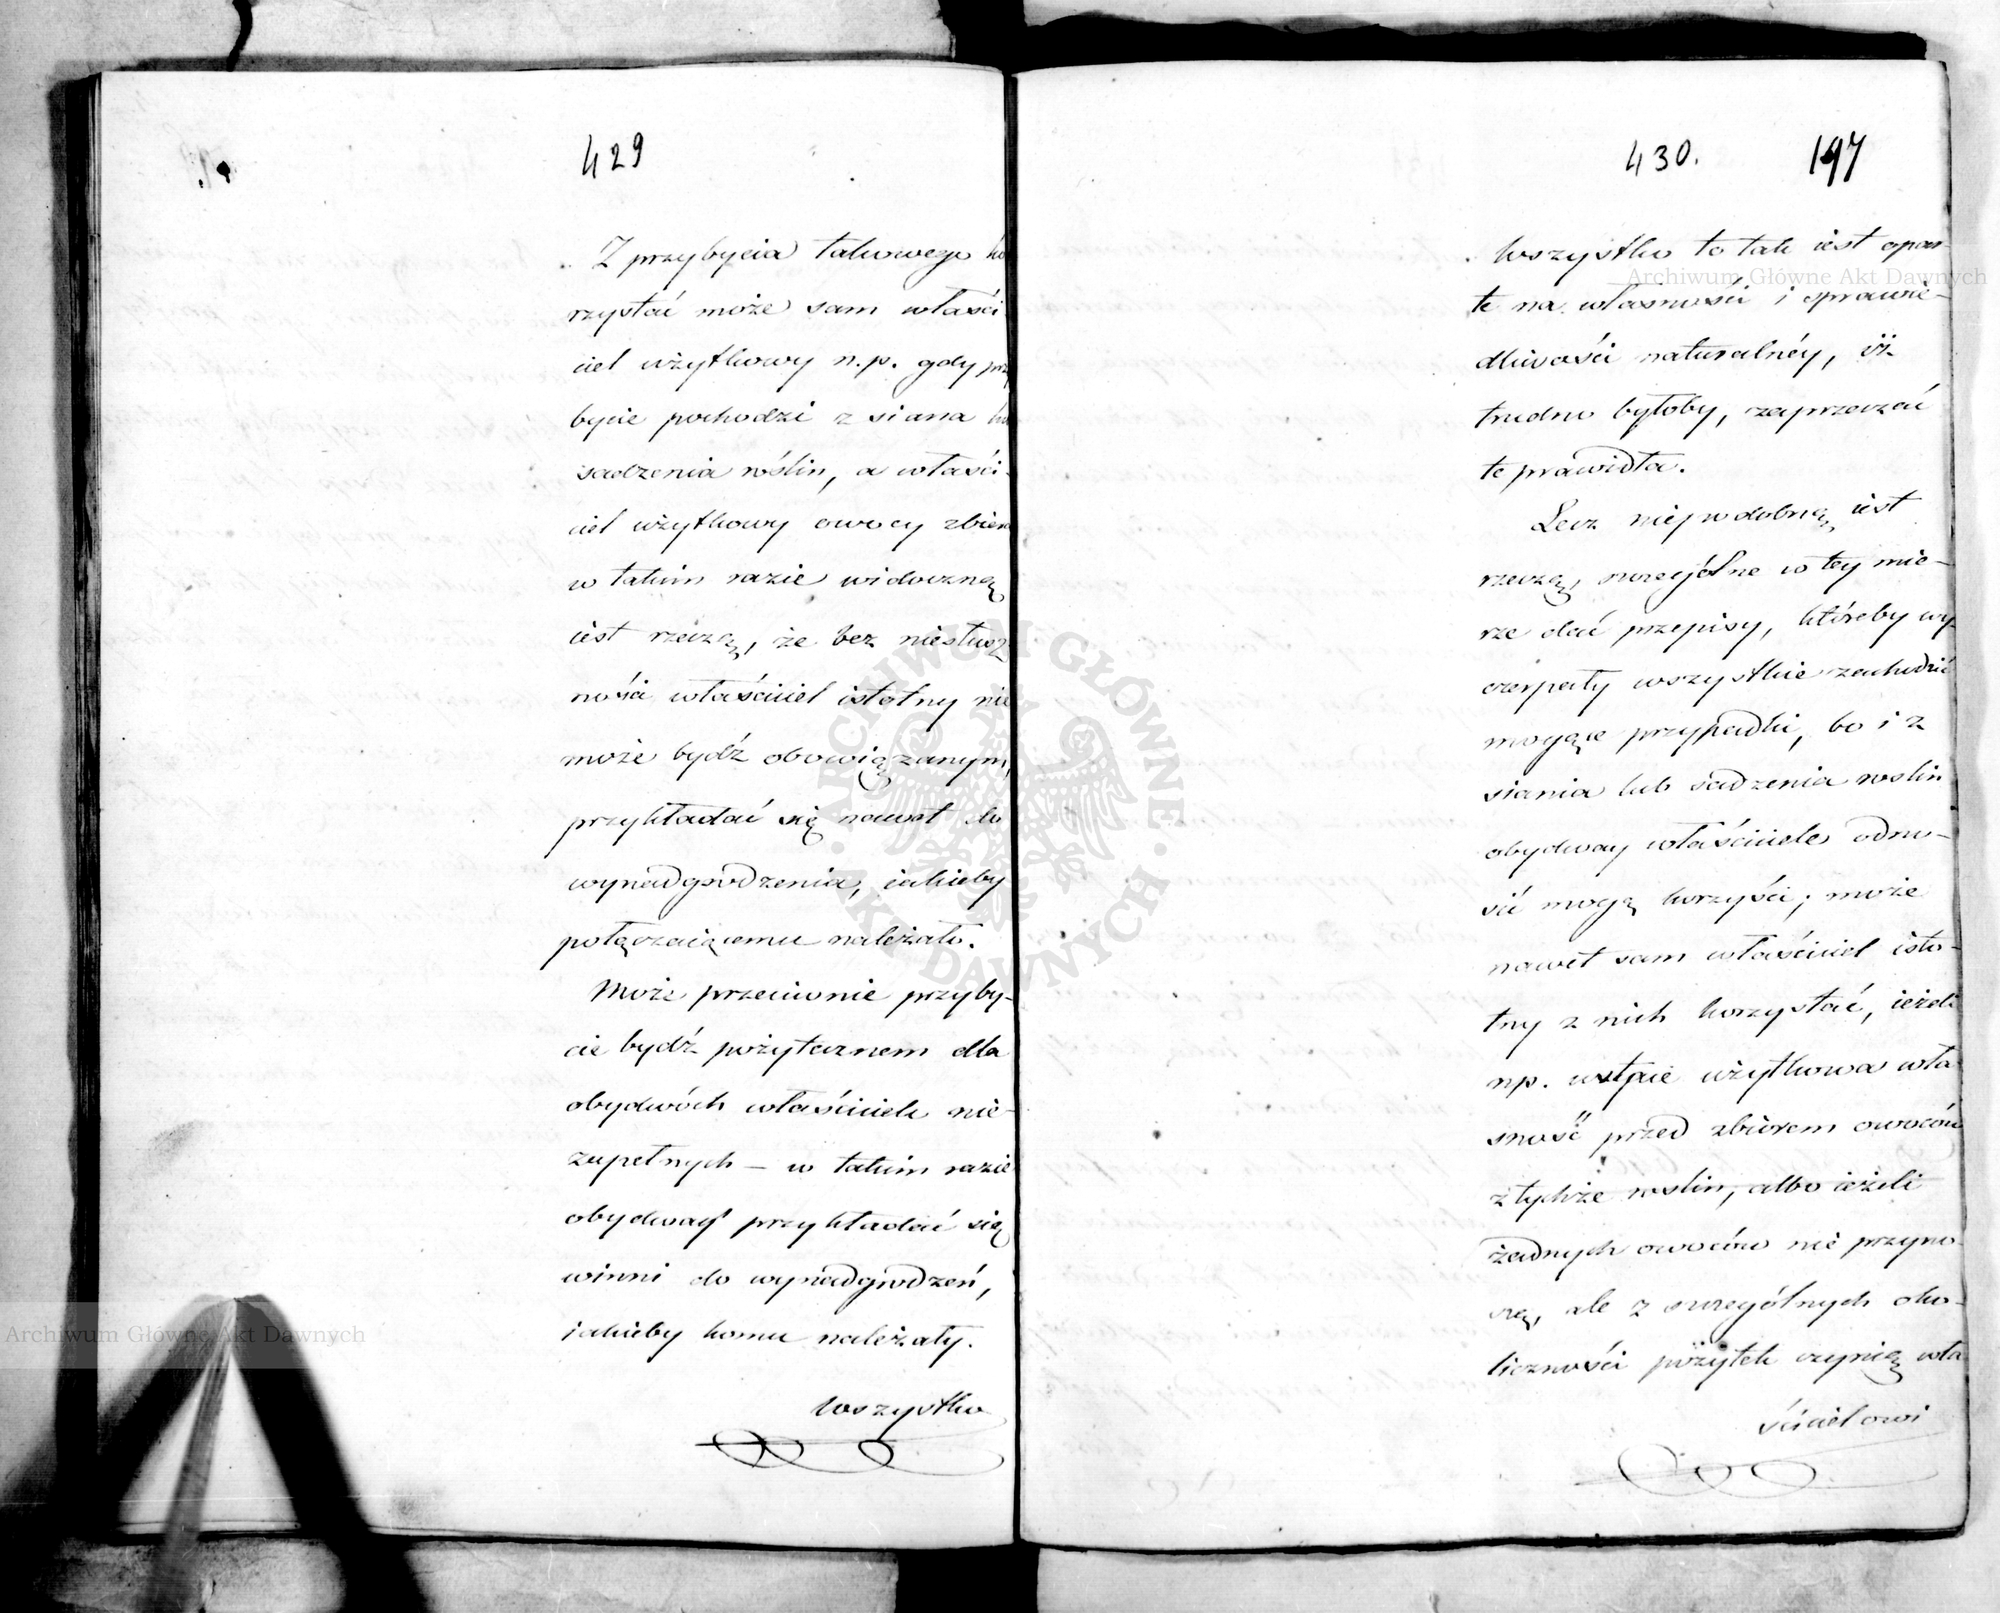 429
Z przybycia takowego ko
rzystać może sam właści
ciel użytkowy n.p. gdy przy
bycie pochodzi z siania lub
sadzenia roślin, a właści-
ciel użytkowy owocy zbiera
w takim razie widoczną
iest rzeczą, że bez niesłusz
ności właściciel istotny nie
może bydź obowiązanym,
przykładać się nawet do
wynadgrodzenia, iakieby
połączaiącemu należało.
Może przeciwnie przyby-
cie bydź pożytecznem dla
obydwóch właścicieli nie-
zupełnych – w takim razie
obydway przykładać się
winni do wynadgrodzeń,
iakieby komu należały.
Wszystko
430. 197
Wszystko to tak iest opar-
te na własności i sprawie-
dliwości naturalnéy, iż
trudno byłoby, zaprzeczać
te prawidła.
Lecz niepodobną iest
rzeczą, szczególne w tey mie-
rze dać przepisy, któreby wy-
czerpały wszystkie zachodzić
mogące przypadki, bo i z
siania lub sadzenia roslin
obydway właściciele odno-
sić mogą korzyści; może
nawet sam właściciel isto-
tny z nich korzystać, ieżeli
np. ustaie użytkowa wła-
sność przed zbiorem owoców
z tychże roslin, albo ieżeli
żadnych owoców nie przyno-
szą, ale z szczególnych oko-
liczności pożytek czynią wła
ścicielowi
Archiwum Główne Akt Dawnych
ARCHIWUM GŁÓWNE AKT DAWNYCH
Archiwum Główne Akt Dawnych